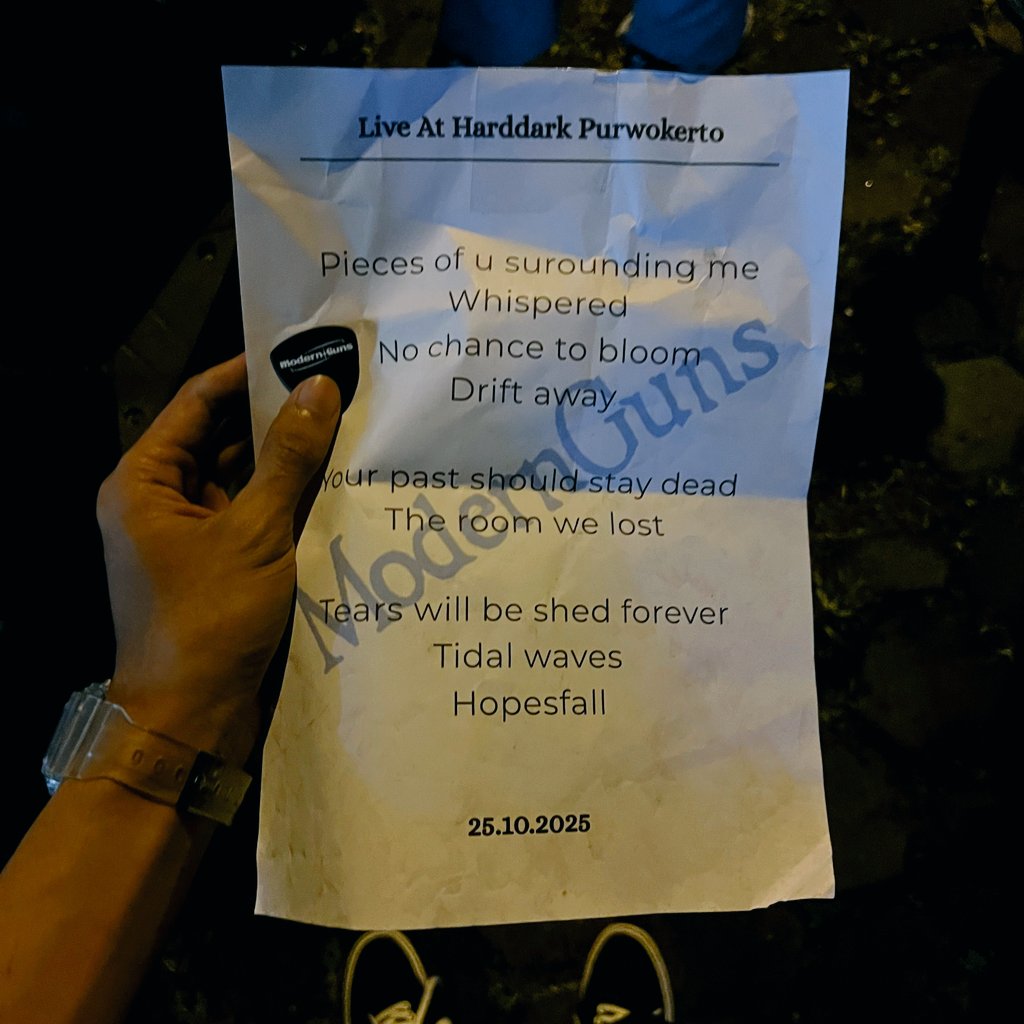 Live At Harddark Purwokerto
Pieces of u surounding me
Whispered
Modern Guns
No chance to bloom
Drift away
Your past should stay dead
The room we lost
Tears will be shed forever
Tidal waves
Hopesfall
ModernGuns
25.10.2025